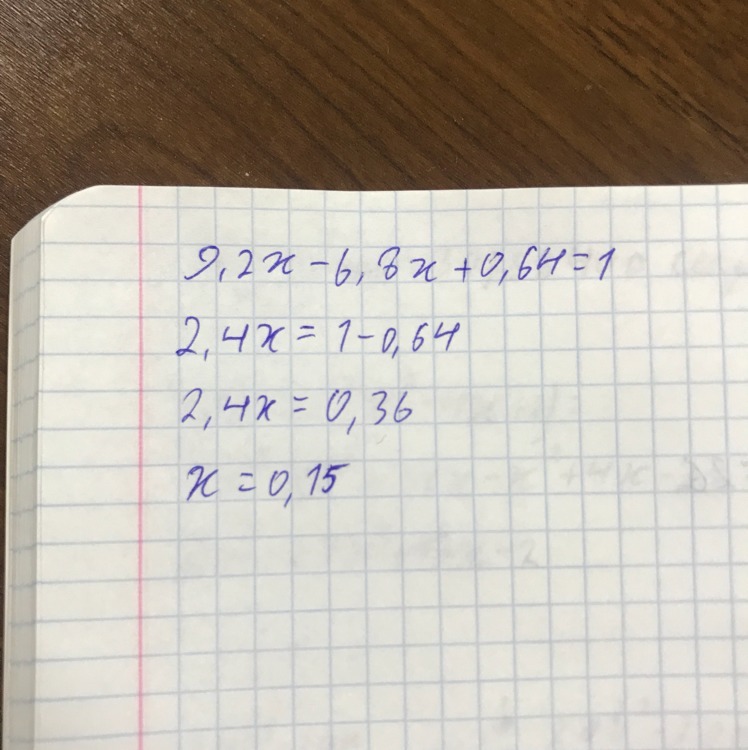 9,2x - 6,8x + 0,64 = 1
2,4x = 1 - 0,64
2,4x = 0,36
x = 0,15